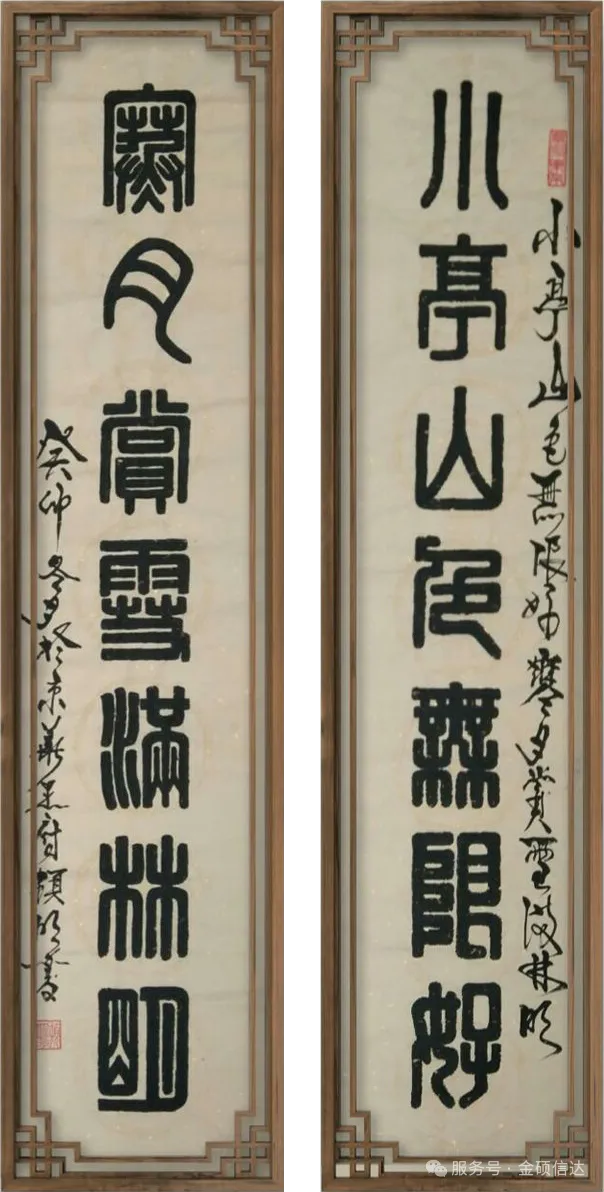 小亭山色無限好寒月賞雪滿林明
小亭山色無限好
寒月賞雪滿林明
癸卯冬月於京華
服务号 · 金硕信达